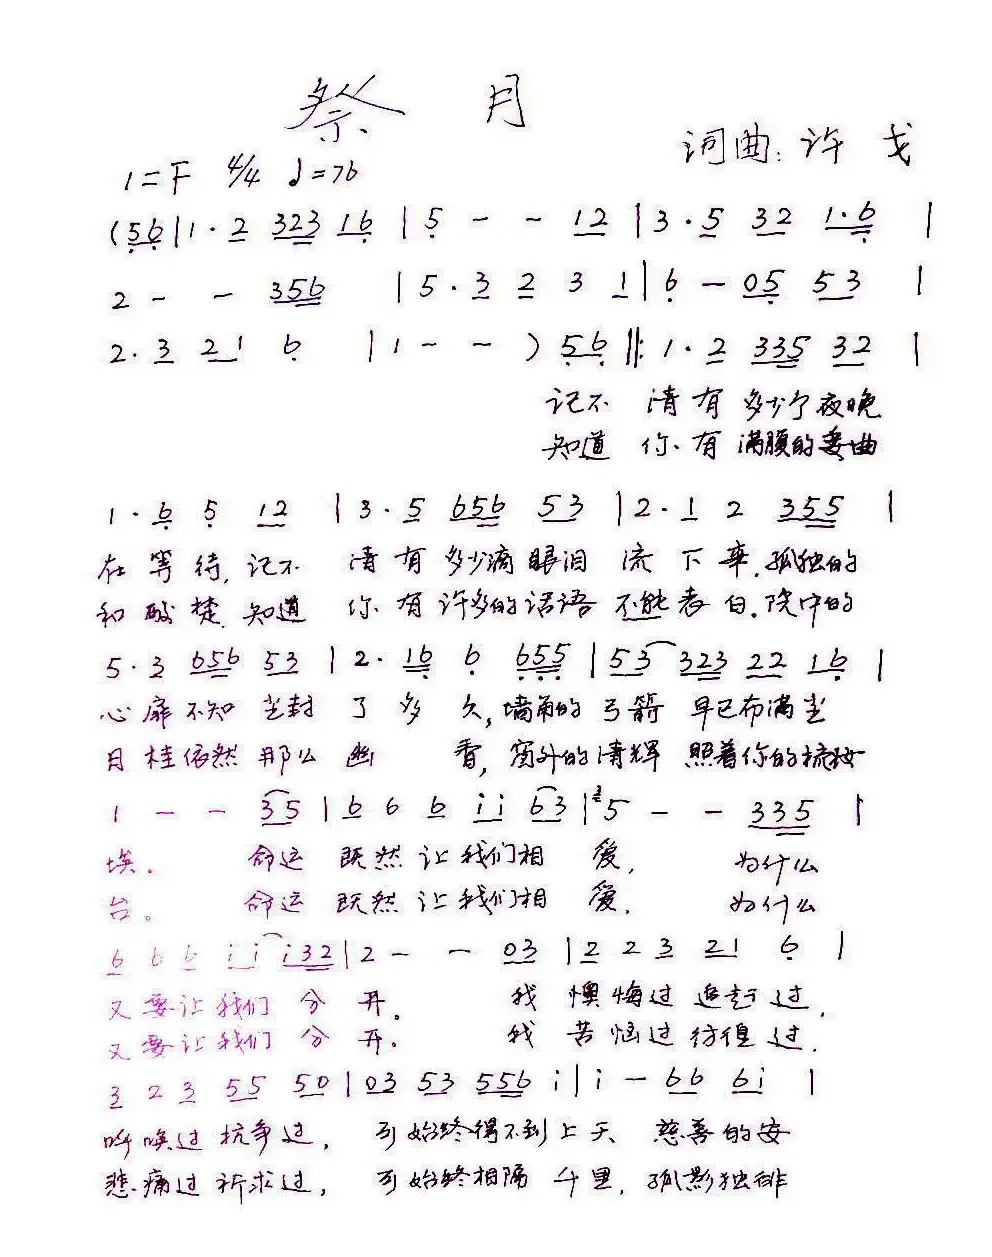 祭 月
词曲：许 戈
1=F 4/4 ♩=76
(56|1·2 323 16|5 - - 12|3·5 32 1·6|
2 - - 356 |5·3 2 3 1|6 - 05 53|
2·3 21 6 |1 - - ) 56‖:1·2 335 32|
记不 清有 多少个夜晚
知道 你有 满腹的委曲
1·6 5 12 |3·5 656 53|2·1 2 355|
在等待，记不 清有多少滴眼泪 流下来，孤独的
和酸楚，知道 你有许多的话语 不能表白，院中的
5·3 656 53|2·16 6 655|53 323 22 16|
心扉不知尘封 了多久，墙角的弓箭 早已布满尘
月桂依然那么幽 香，窗外的清辉 照着你的梳妆
1 - - 35|6 6 6 ii 63|5 - - 335|
埃。 命运 既然让我们相 爱， 为什么
台。 命运 既然让我们相 爱， 为什么
6 6 6 ii i32|2 - - 03|2 2 3 21 6|
又要让我们 分 开。 我 懊悔过 追赶过，
又要让我们 分 开。 我 苦恼过彷徨过，
3 2 3 55 50|03 53 556 i|i - 66 6i|
呼唤过抗争过， 可始终得不到上天 慈善的安
悲痛过祈求过， 可始终相隔 千里，孤影独徘